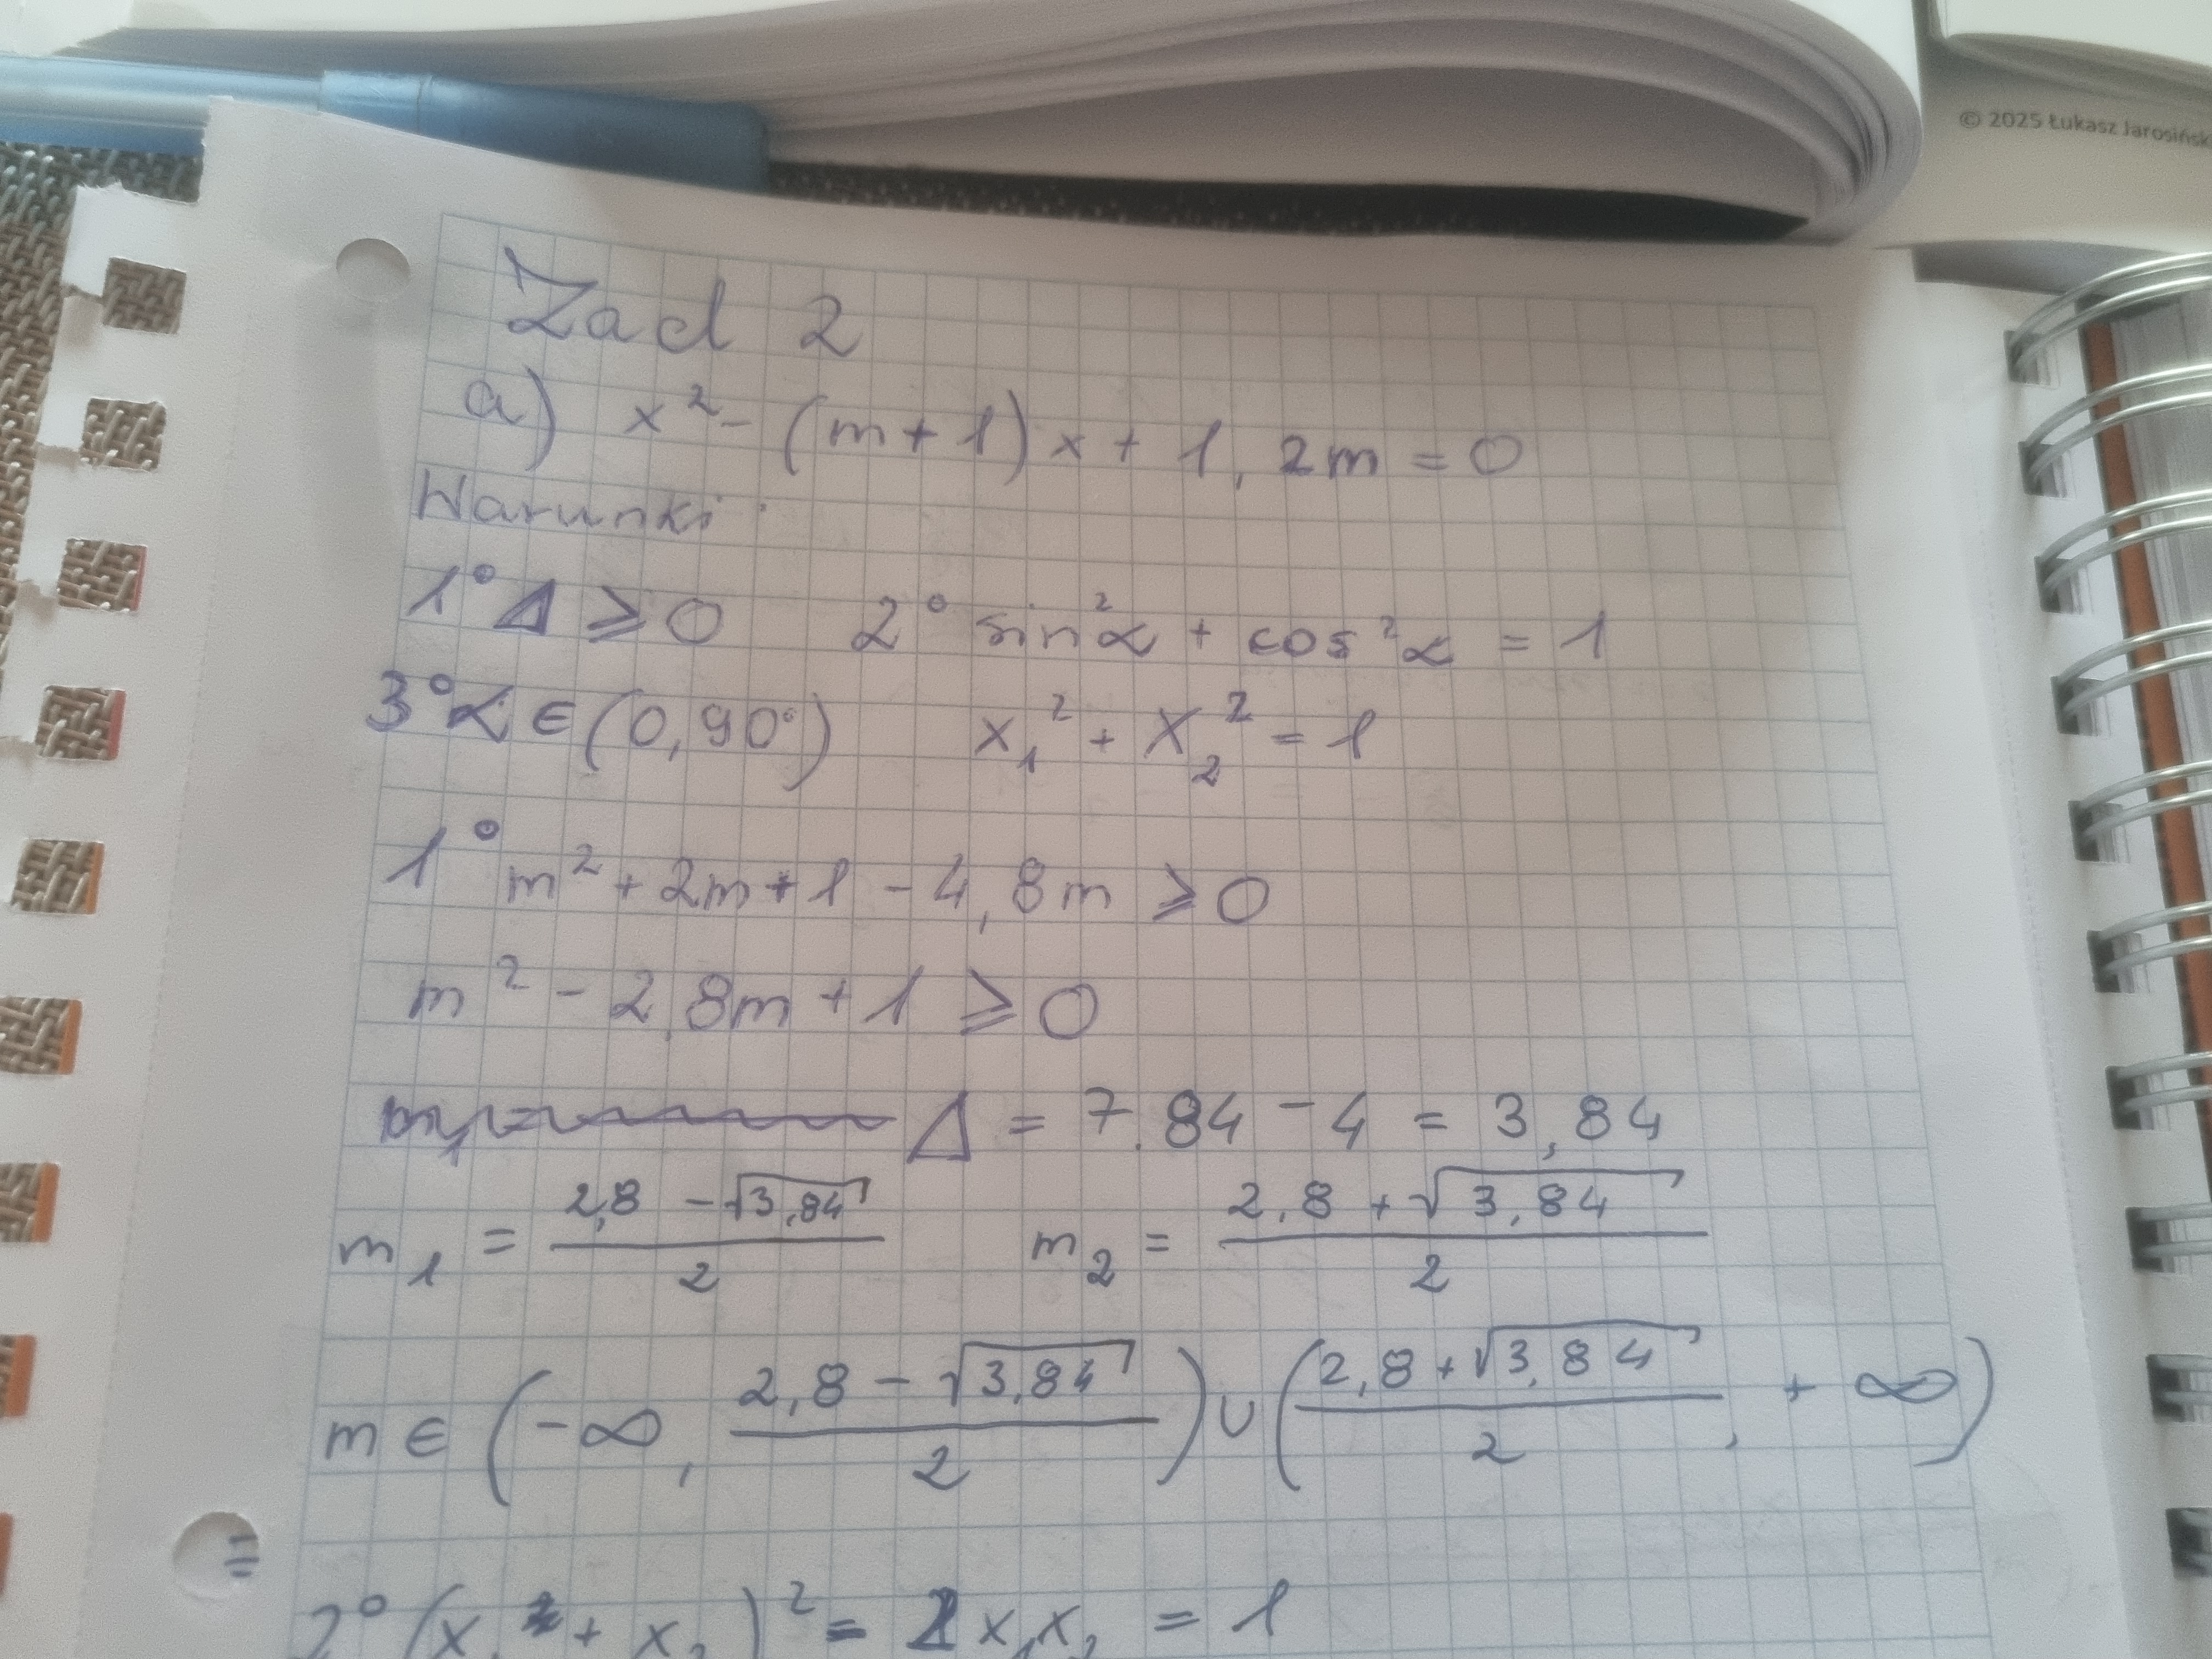 © 2025 Łukasz Jarosińsk
Zad 2
a) x² - (m+1)x + 1,2m = 0
Warunki:
1° Δ ⩾ 0 2° sin²α + cos²α = 1
3° α ∈ (0,90°) x₁² + x₂² = 1
1° m² + 2m + 1 - 4,8m ⩾ 0
m² - 2,8m + 1 ⩾ 0
Δ = 7.84 - 4 = 3,84
m₁ = (2,8 - √3,84)/2 m₂ = (2,8 + √3,84)/2
m ∈ (-∞, (2,8 - √3,84)/2) ∪ ((2,8 + √3,84)/2, +∞)
=
2° (x₁ + x₂)² = 2x₁x₂ = 1